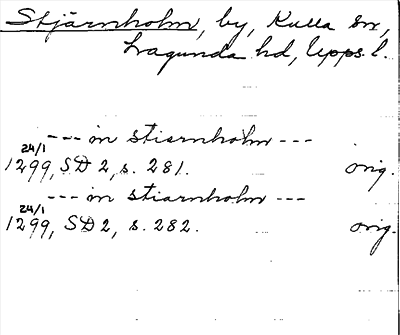 Stjärnholm, by, Kulla sn,
Lagunda hd, Upps. l.
--- in stiernholm ---
24/1
1299, SD 2, s. 281. orig.
--- in stiarnholm ---
24/1
1299, SD 2, s. 282. orig.